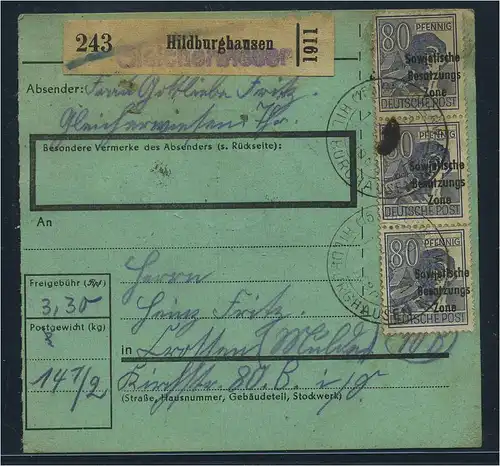 243 Hildburghausen 1911
Gleicherwiesen
Absender: Frau Gotliebe Fritz.
Gleicherwiesen Thr.
Besondere Vermerke des Absenders (s. Rückseite):
An
Freigebühr (Rpf)
3,30
Postgewicht (kg)
14 1/2
Herrn
Heinz Fritz.
in
Kirchstr. 80.B.
(Straße, Hausnummer, Gebäudeteil, Stockwerk)
80 PFENNIG
Sowjetische
Besatzungs
Zone
DEUTSCHE POST
80 PFENNIG
Sowjetische
Besatzungs
Zone
DEUTSCHE POST
80 PFENNIG
Sowjetische
Besatzungs
Zone
DEUTSCHE POST